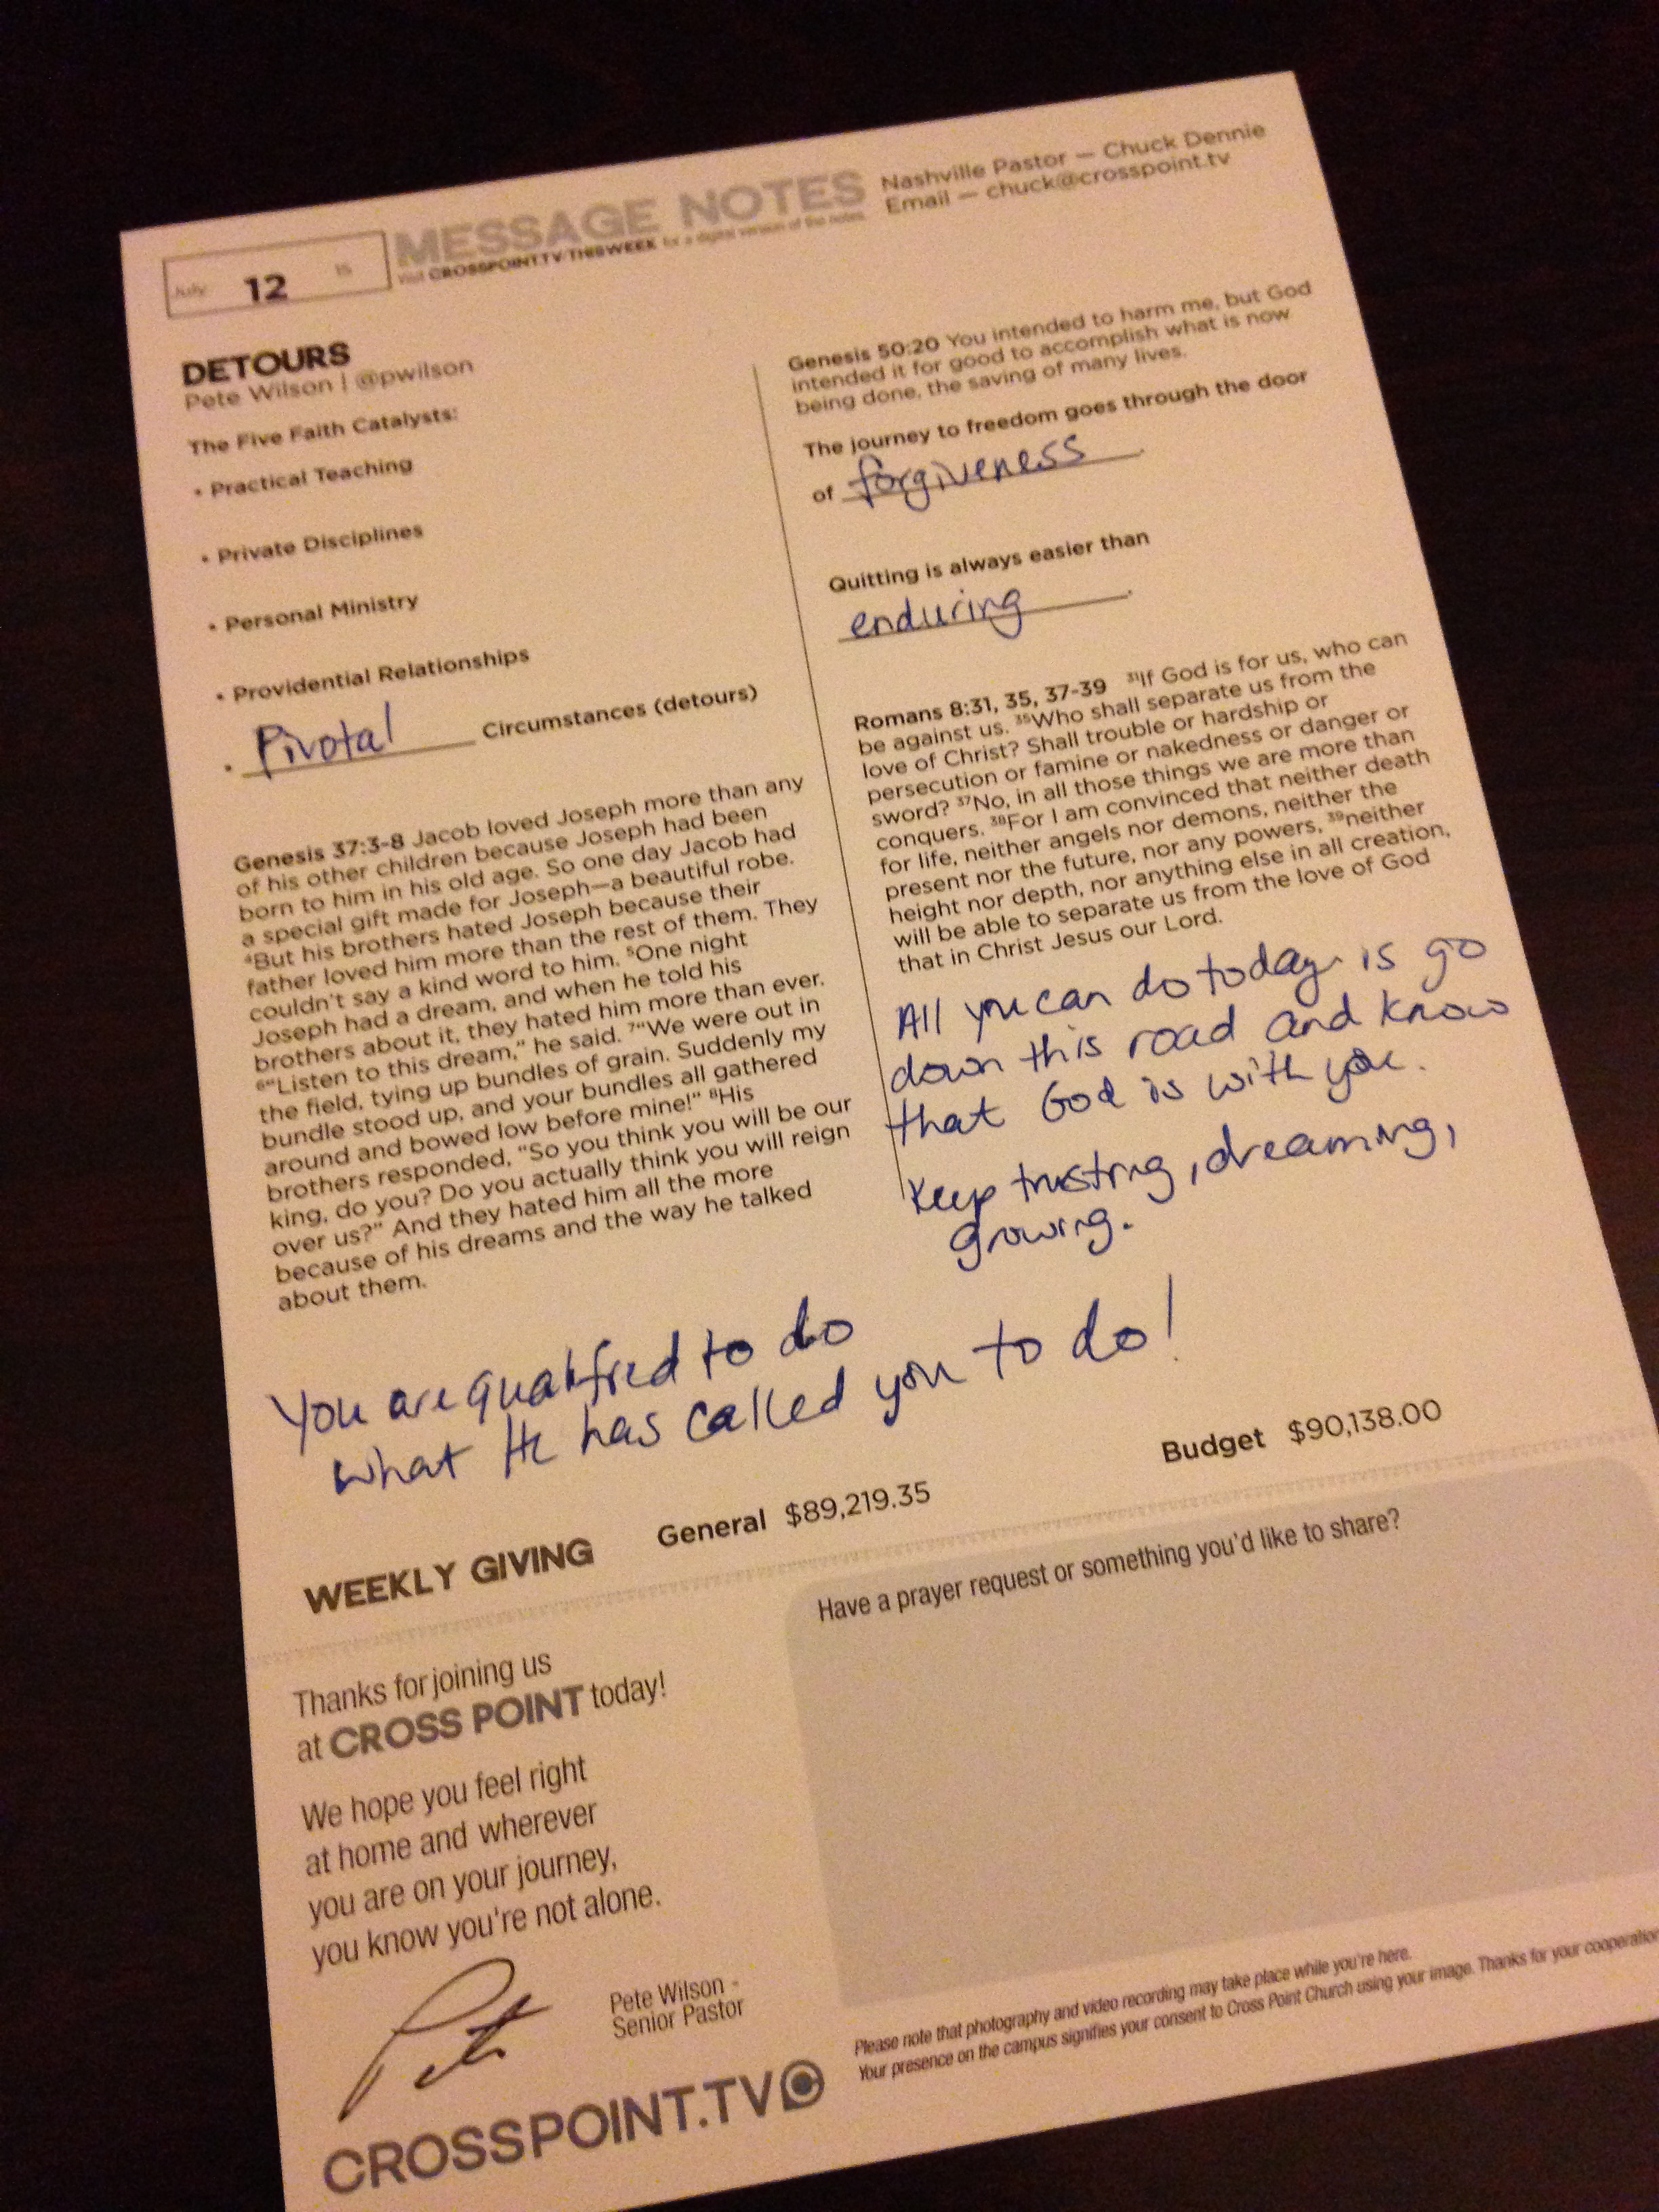 July 12 15
MESSAGE NOTES
Visit CROSSPOINT.TV/THISWEEK for a digital version of the notes.
Nashville Pastor — Chuck Dennie
Email — chuck@crosspoint.tv
DETOURS
Pete Wilson | @pwilson
The Five Faith Catalysts:
• Practical Teaching
• Private Disciplines
• Personal Ministry
• Providential Relationships
• Pivotal Circumstances (detours)
Genesis 37:3-8 Jacob loved Joseph more than any
of his other children because Joseph had been
born to him in his old age. So one day Jacob had
a special gift made for Joseph—a beautiful robe.
⁴But his brothers hated Joseph because their
father loved him more than the rest of them. They
couldn't say a kind word to him. ⁵One night
Joseph had a dream, and when he told his
brothers about it, they hated him more than ever.
⁶"Listen to this dream," he said. ⁷"We were out in
the field, tying up bundles of grain. Suddenly my
bundle stood up, and your bundles all gathered
around and bowed low before mine!" ⁸His
brothers responded, "So you think you will be our
king, do you? Do you actually think you will reign
over us?" And they hated him all the more
because of his dreams and the way he talked
about them.
Genesis 50:20 You intended to harm me, but God
intended it for good to accomplish what is now
being done, the saving of many lives.
The journey to freedom goes through the door
of forgiveness.
Quitting is always easier than
enduring.
Romans 8:31, 35, 37-39 ³¹If God is for us, who can
be against us. ³⁵Who shall separate us from the
love of Christ? Shall trouble or hardship or
persecution or famine or nakedness or danger or
sword? ³⁷No, in all those things we are more than
conquers. ³⁸For I am convinced that neither death
for life, neither angels nor demons, neither the
present nor the future, nor any powers, ³⁹neither
height nor depth, nor anything else in all creation,
will be able to separate us from the love of God
that in Christ Jesus our Lord.
All you can do today is go
down this road and know
that God is with you.
Keep trusting, dreaming,
growing.
You are qualified to do
what He has called you to do!
WEEKLY GIVING General $89,219.35 Budget $90,138.00
Thanks for joining us
at CROSS POINT today!
We hope you feel right
at home and wherever
you are on your journey,
you know you're not alone.
Pete
Pete Wilson -
Senior Pastor
CROSSPOINT.TV
Have a prayer request or something you'd like to share?
Please note that photography and video recording may take place while you're here.
Your presence on the campus signifies your consent to Cross Point Church using your image. Thanks for your cooperation